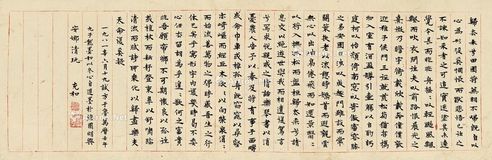 歸去來兮田園將蕪胡不歸既自以
心為形役奚惆悵而獨悲悟已往之
不諫知來者之可追實迷途其未遠
覺今是而昨非舟搖搖以輕颺風飄
飄而吹衣問征夫以前路恨晨光之
熹微乃瞻衡宇載欣載奔僮僕歡
迎稚子候門三徑就荒松菊猶存攜幼
入室有酒盈樽引壺觴以自酌眄
庭柯以怡顏倚南窗以寄傲審容膝
之易安園日涉以成趣門雖設而常
關策扶老以流憩時矯首而遐觀雲
無心以出岫鳥倦飛而知還景翳翳
以將入撫孤松而盤桓歸去來兮請
息交以絕遊世與我而相遺復駕言
兮焉求悅親戚之情話樂琴書以消
憂農人告余以春及將有事乎西疇
或命巾車或棹孤舟既窈窕以尋壑
亦崎嶇而經丘木欣欣以向榮泉涓
涓而始流羨萬物之得時感吾生之行
休已矣乎寓形宇內復幾時曷不委
心任去留胡為乎遑遑欲何之富貴
非吾願帝鄉不可期懷良辰以孤往
或植杖而耘耔登東皋以舒嘯臨
清流而賦詩聊乘化以歸盡樂夫
天命復奚疑
一九八一年六月十九試方于魯萬曆壬午
九子墨
安娜清玩
充和